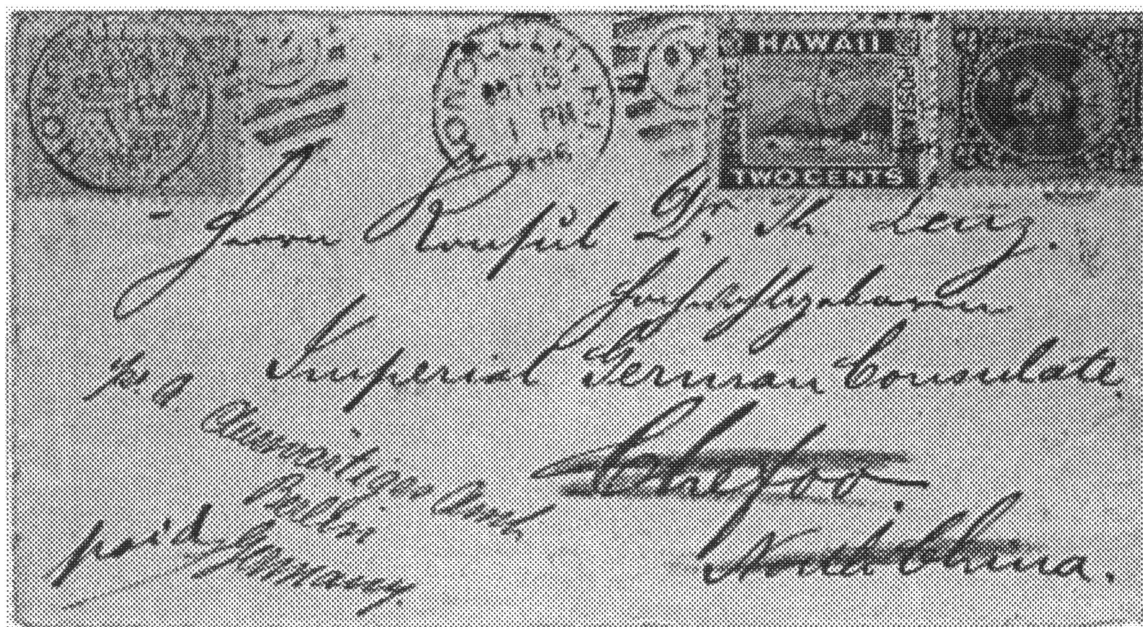 HAWAII
POSTAGE
TWO CENTS
PM
Herrn Konsul Dr. Th. Lenz.
Hochwohlgeboren
Imperial German Consulate,
Chefoo.
North China.
p. a.
Auswärtiges Amt,
Berlin
Germany.
paid